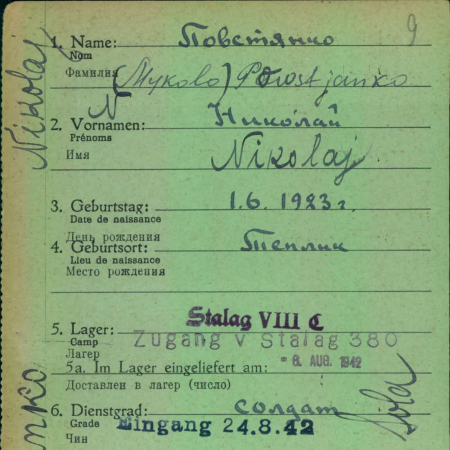 9
1. Name: Повстянко
Nom
Фамилия (Mykola) Powstjanko
N
2. Vornamen: Николай
Prénoms
Имя Nikolaj
Nikolaj
3. Geburtstag: 1.6.1923 г.
Date de naissance
День рождения
4. Geburtsort: Теплик
Lieu de naissance
Место рождения
Stalag VIII C
5. Lager: Zugang v Stalag 380
Camp
Лагерь
5a. Im Lager eingeliefert am: - 6. AUG. 1942
Доставлен в лагер (число)
6. Dienstgrad: солдат
Grade
Чин
Eingang 24.8.42
nko